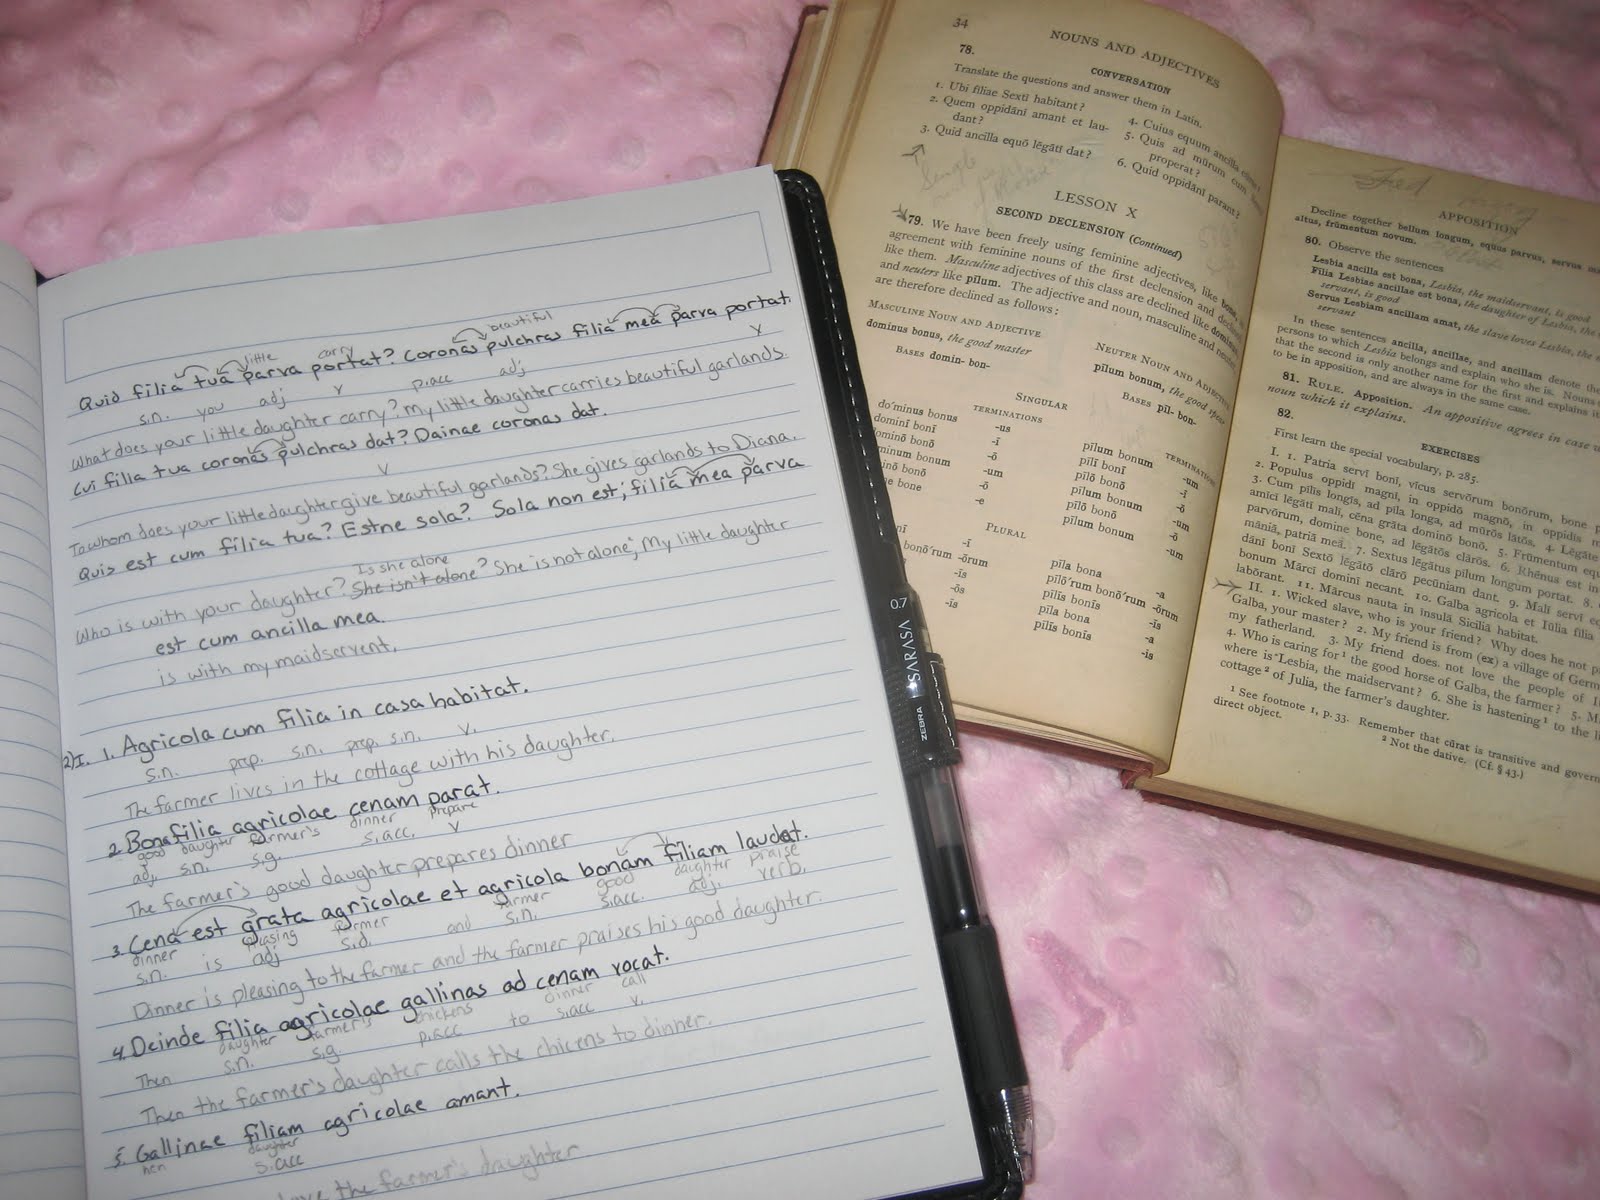 beautiful
Quid filia tua parva portat? Coronas pulchras filia mea parva portat.
little carry
s.n. you adj v p.acc adj v
What does your little daughter carry? My little daughter carries beautiful garlands.
Cui filia tua coronas pulchras dat? Dainae coronas dat.
v
To whom does your little daughter give beautiful garlands? She gives garlands to Diana.
Quis est cum filia tua? Estne sola? Sola non est; filia mea parva
Is she alone
Who is with your daughter? She isn't alone? She is not alone; My little daughter
est cum ancilla mea.
is with my maidservent.
2) I. 1. Agricola cum filia in casa habitat.
s.n. prep. s.n. prep. s.n. v.
The farmer lives in the cottage with his daughter.
2. Bona filia agricolae cenam parat.
good daughter farmer's dinner prepare
adj. s.n. s.g. s.acc. v
The farmer's good daughter prepares dinner
3. Cena est grata agricolae et agricola bonam filiam laudat.
dinner pleasing farmer farmer good daughter praise
s.n. is adj s.d. and s.n. s.acc. adj. verb.
Dinner is pleasing to the farmer and the farmer praises his good daughter.
4. Deinde filia agricolae gallinas ad cenam vocat.
daughter farmer's chickens dinner call
Then s.n. s.g. p.acc to s.acc v.
Then the farmer's daughter calls the chicens to dinner.
5. Gallinae filiam agricolae amant.
hen daughter
s.acc
love the farmer's daughter
ZEBRA SARASA 0.7
34 NOUNS AND ADJECTIVES
78. CONVERSATION
Translate the questions and answer them in Latin.
1. Ubi fīliae Sextī habitant?
2. Quem oppidānī amant et lau-
dant?
3. Quid ancilla equō lēgātī dat?
4. Cuius equum ancilla
5. Quis ad mūrum cum
properat?
6. Quid oppidānī parant?
LESSON X
SECOND DECLENSION (Continued)
79. We have been freely using feminine adjectives, like bona, in
agreement with feminine nouns of the first declension and
like them. Masculine adjectives of this class are declined like dominus,
and neuters like pīlum. The adjective and noun, masculine and neuter,
are therefore declined as follows:
MASCULINE NOUN AND ADJECTIVE
dominus bonus, the good master
BASES domin- bon-
NEUTER NOUN AND ADJECTIVE
pīlum bonum, the good spear
BASES pīl- bon-
SINGULAR
TERMINATIONS
do′minus bonus -us
dominī bonī -ī
dominō bonō -ō
minum bonum -um
inō bonō -ō
ne bone -e
TERMINATIONS
pīlum bonum -um
pīlī bonī -ī
pīlō bonō -ō
pīlum bonum -um
pīlō bonō -ō
pīlum bonum -um
PLURAL
-ī
bonō′rum -ōrum
-īs
-ōs
-īs
pīla bona -a
pīlō′rum bonō′rum -ōrum
pīlīs bonīs -īs
pīla bona -a
pīlīs bonīs -īs
Fred
APPOSITION
Decline together bellum longum, equus parvus, servus
altus, frūmentum novum.
80. Observe the sentences
Lesbia ancilla est bona, Lesbia, the maidservant, is good
Fīlia Lesbiae ancillae est bona, the daughter of Lesbia, the
servant, is good
Servus Lesbiam ancillam amat, the slave loves Lesbia, the
servant
In these sentences ancilla, ancillae, and ancillam denote the
persons to which Lesbia belongs and explain who she is. Nouns
that the second is only another name for the first and explains it
to be in apposition, and are always in the same case.
81. RULE. Apposition. An appositive agrees in case
noun which it explains.
82. EXERCISES
First learn the special vocabulary, p. 285.
I. 1. Patria servī bonī, vīcus servōrum bonōrum, bone
2. Populus oppidī magnī, in oppidō magnō, in oppidīs
3. Cum pīlīs longīs, ad pīla longa, ad mūrōs lātōs. 4. Lēgāte
amīcī lēgātī malī, cēna grāta dominō bonō. 5. Frūmentum
parvōrum, domine bone, ad lēgātōs clārōs. 6. Rhēnus est in
māniā, patriā meā. 7. Sextus lēgātus pīlum longum portat. 8.
dānī bonī Sextō lēgātō clārō pecūniam dant. 9. Malī servī
bonum Mārcī dominī necant. 10. Galba agricola et Iūlia fīlia
labōrant. 11. Mārcus nauta in īnsulā Siciliā habitat.
II. 1. Wicked slave, who is your friend? Why does he not
Galba, your master? 2. My friend is from (ex) a village of
my fatherland. 3. My friend does not love the people of
4. Who is caring for¹ the good horse of Galba, the farmer? 5.
where is Lesbia, the maidservant? 6. She is hastening¹ to the
cottage² of Julia, the farmer's daughter.
¹ See footnote 1, p. 33. Remember that cūrat is transitive and
direct object.
² Not the dative. (Cf. § 43.)